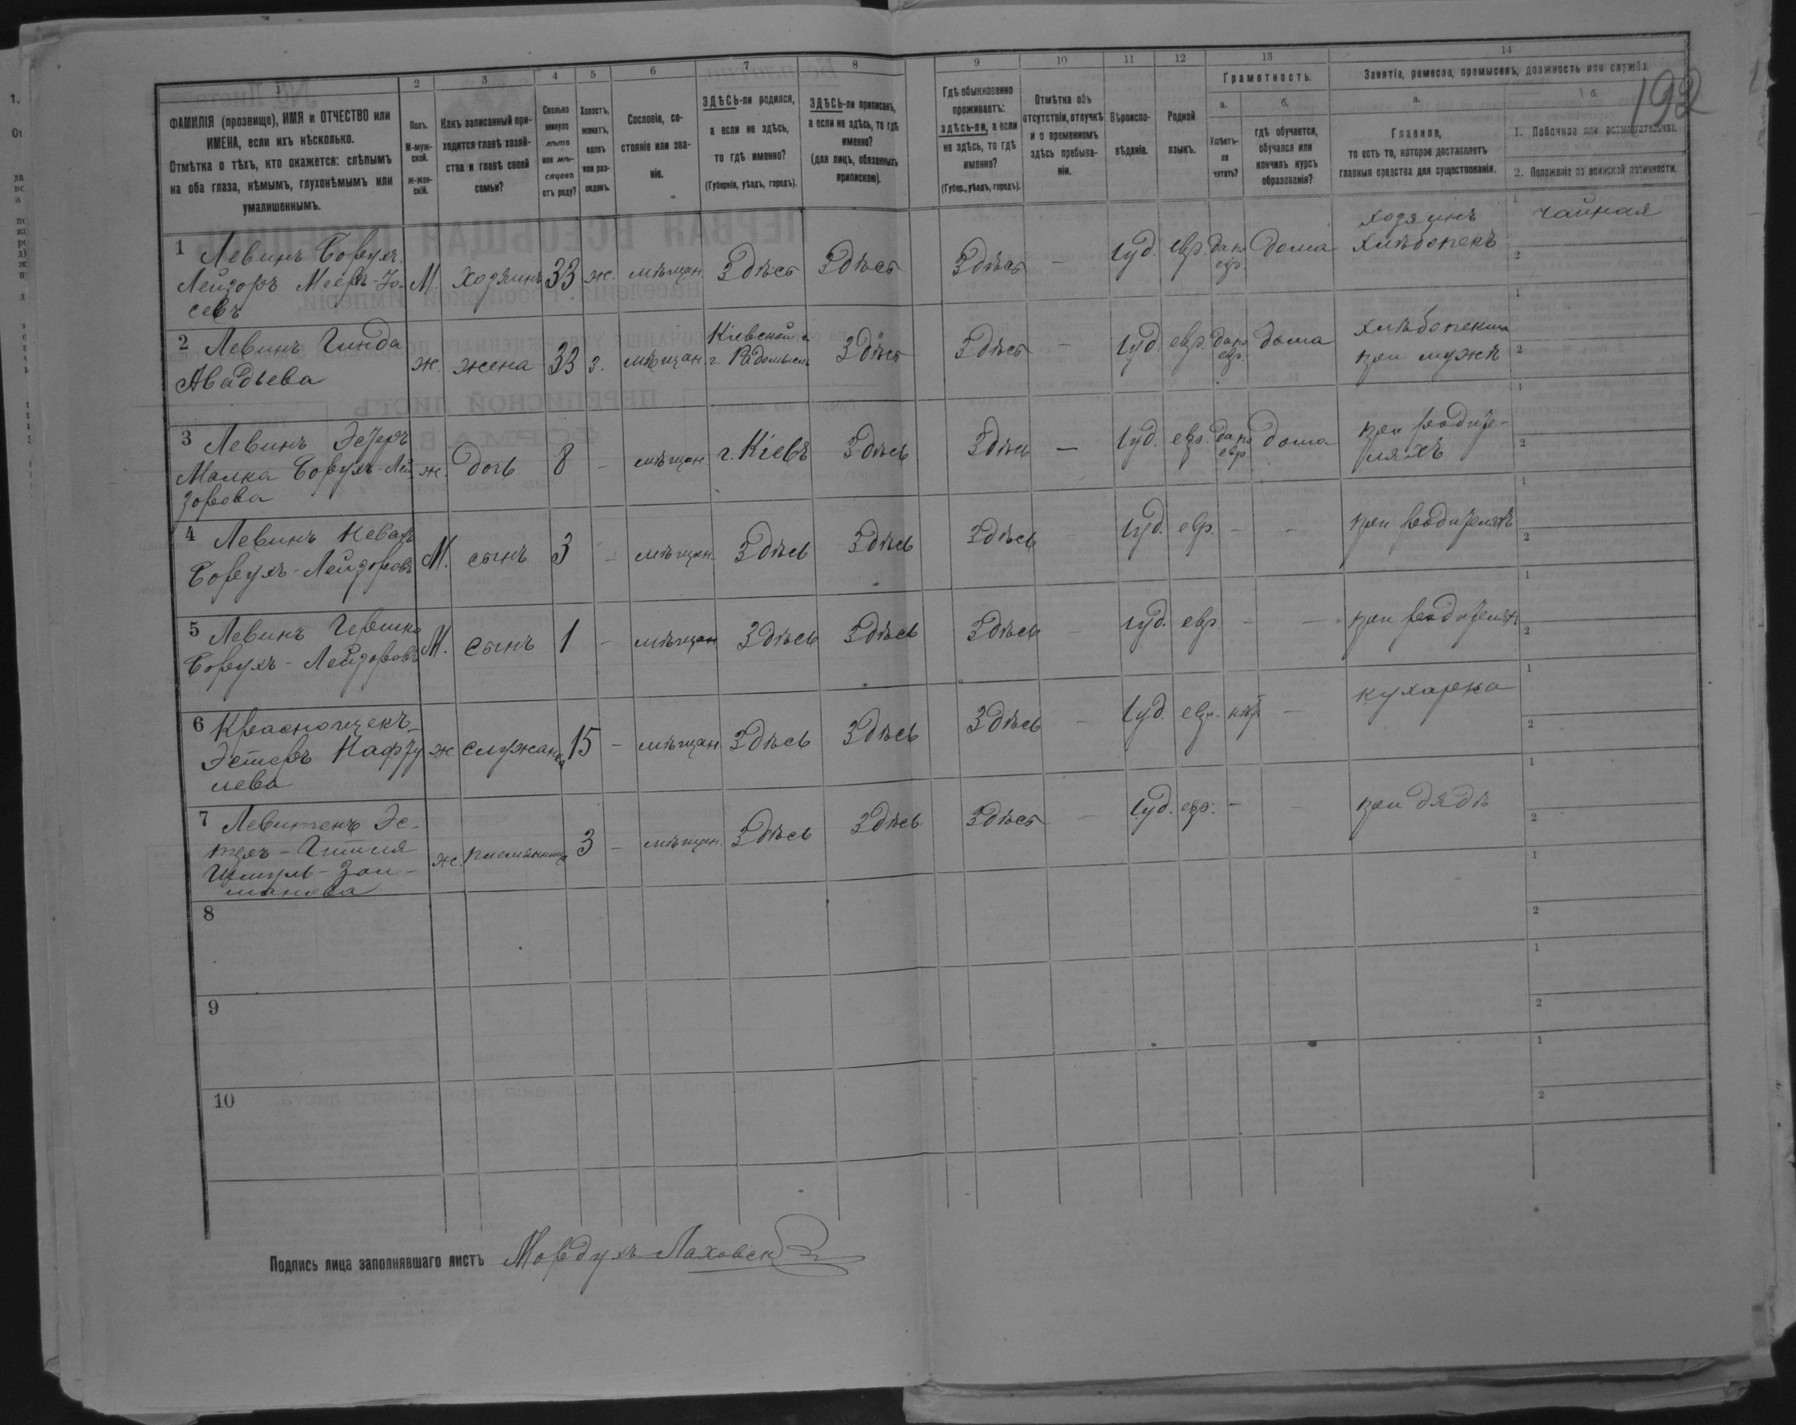 192
1 2 3 4 5 6 7 8 9 10 11 12 13 14
ФАМИЛІЯ (прозвище), ИМЯ и ОТЧЕСТВО или
ИМЕНА, если ихъ нѣсколько.
Отмѣтка о тѣхъ, кто окажется: слѣпымъ
на оба глаза, нѣмымъ, глухонѣмымъ или
умалишеннымъ.
Полъ.
М-муж-
ской.
ж-жен-
скій.
Какъ записанный при-
ходится главѣ хозяй-
ства и главѣ своей
семьи?
Сколько
минуло
лѣтъ
или мѣ-
сяцевъ
отъ роду?
Холостъ,
женатъ,
вдовъ
или раз-
веденъ.
Сословіе, со-
стояніе или зва-
ніе.
ЗДѢСЬ-ли родился,
а если не здѣсь,
то гдѣ именно?
(Губернія, уѣздъ, городъ).
ЗДѢСЬ-ли приписанъ,
а если не здѣсь, то гдѣ
именно?
(для лицъ, обязанныхъ
припискою).
Гдѣ обыкновенно
проживаетъ:
здѣсь-ли, а если
не здѣсь, то гдѣ
именно?
(Губер., уѣздъ, городъ).
Отмѣтка объ
отсутствіи, отлучкѣ
и о временномъ
здѣсь пребыва-
ніи.
Вѣроиспо-
вѣданіе.
Родной
языкъ.
Грамотность.
а.
Умѣетъ-
ли
читать?
б.
гдѣ обучается,
обучался или
кончилъ курсъ
образованія?
Занятіе, ремесло, промыселъ, должность или служба.
а.
Главное,
то есть то, которое доставляетъ
главныя средства для существованія.
б.
1. Побочное или вспомогательное.
2. Положеніе по воинской повинности.
1 Левинъ Борухъ
Лейзоръ Мееръ-Іо-
севъ
М. хозяинъ 33 ж. мѣщан. Здѣсь Здѣсь Здѣсь — Іуд. евр. да по евр. дома хозяинъ хлѣбопекъ 1 чайная
2
2 Левинъ Гинда
Авадьева
ж. жена 33 з. мѣщан. Кіевской г. г. Радомысль Здѣсь Здѣсь — Іуд. евр. да по евр. дома при мужѣ
3 Левинъ Эстеръ
Малка Борухъ-Лей
зорова
ж. дочь 8 — мѣщан. г. Кіевъ Здѣсь Здѣсь — Іуд. евр. да по евр. дома при родите-
ляхъ
4 Левинъ
Борухъ-Лейзоровъ
М. сынъ 3 — мѣщан. Здѣсь Здѣсь Здѣсь — Іуд. евр. — — при родителяхъ
5 Левинъ
Борухъ-Лейзоровъ
М. сынъ 1 — мѣщан. Здѣсь Здѣсь Здѣсь — Іуд. евр. — — при родителяхъ
6 Красногцекъ
Эстеръ Нафту
лева
ж служанка 15 — мѣщан. Здѣсь Здѣсь Здѣсь — Іуд. евр. нѣтъ — кухарка
7 Левитенъ Эс-
теръ-Гитля
Шмуль-Зал-
манова
ж. племянница 3 — мѣщан. Здѣсь Здѣсь Здѣсь — Іуд. евр. — — при дядѣ
8
9
10
Подпись лица заполнявшаго листъ Мордухъ Лаховскій